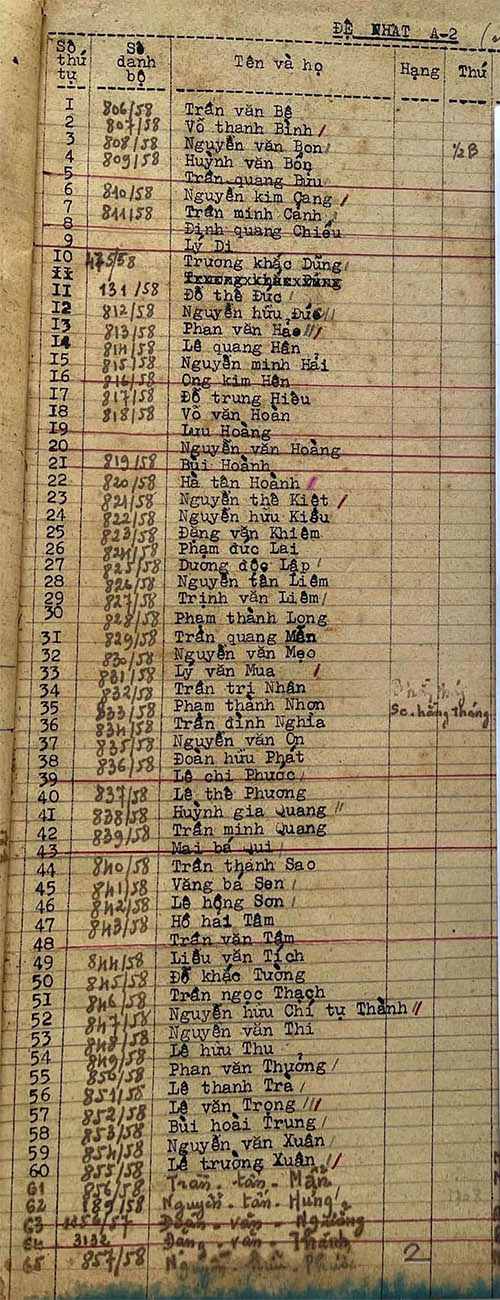 ĐỆ NHẤT A-2
Số thứ tự Số danh bộ Tên và họ Hạng Thứ
I 806/58 Trần văn Bê
2 807/58 Võ thanh Bình /
3 808/58 Nguyễn văn Bon / ½B
4 809/58 Huỳnh văn Bổn
5 Trần quang Bửu
6 810/58 Nguyễn kim Cang /
7 811/58 Trần minh Cảnh
8 Đinh quang Chiểu
9 Lý Di
IO 475/58 Trương khắc Dũng /
II Trương khắc Dũng
II 131/58 Đỗ thế Đức /
I2 812/58 Nguyễn hữu Đức //
I3 813/58 Phan văn Hảo //
I4 814/58 Lê quang Hân
I5 815/58 Nguyễn minh Hải
I6 816/58 Ong kim Hên
I7 817/58 Đỗ trung Hiếu
I8 818/58 Võ văn Hoàn
I9 Lưu Hoàng
20 Nguyễn văn Hoàng
2I 819/58 Bùi Hoành
22 820/58 Hà tân Hoành /
23 821/58 Nguyễn thế Kiệt /
24 822/58 Nguyễn hữu Kiểu
25 823/58 Đặng văn Khiêm
26 824/58 Phạm đức Lai
27 825/58 Dương độc Lập /
28 826/58 Nguyễn tấn Liêm
29 827/58 Trịnh văn Liêm /
30 828/58 Phạm thành Long
3I 829/58 Trần quang Mẫn
32 830/58 Nguyễn văn Mẹo
33 831/58 Lý văn Mua /
34 832/58 Trần trị Nhân
35 833/58 Phạm thành Nhơn Sc. hằng tháng
36 834/58 Trần đình Nghĩa
37 835/58 Nguyễn văn Ơn
38 836/58 Đoàn hữu Phát
39 Lê chí Phước /
40 837/58 Lê thế Phương
4I 838/58 Huỳnh gia Quang //
42 839/58 Trần minh Quang
43 Mai bá Qui /
44 840/58 Trần thanh Sao
45 841/58 Văng bá Sen /
46 842/58 Lê hồng Sơn /
47 843/58 Hồ hải Tâm
48 Trần văn Tâm
49 844/58 Liễu văn Tích
50 845/58 Đỗ khắc Tường
5I 846/58 Trần ngọc Thạch
52 847/58 Nguyễn hữu Chí tự Thành //
53 848/58 Nguyễn văn Thi
54 849/58 Lê hữu Thu
55 850/58 Phan văn Thưởng /
56 851/58 Lê thanh Trà /
57 852/58 Lê văn Trọng ///
58 853/58 Bùi hoài Trung /
59 854/58 Nguyễn văn Xuân /
60 855/58 Lê trường Xuân //
61 856/58 Trần - tấn - Mẫn
62 189/58 Nguyễn - tấn - Hưng /
63 Đoàn - văn -
64 3132 Đặng - văn - Thành
65 857/58 2